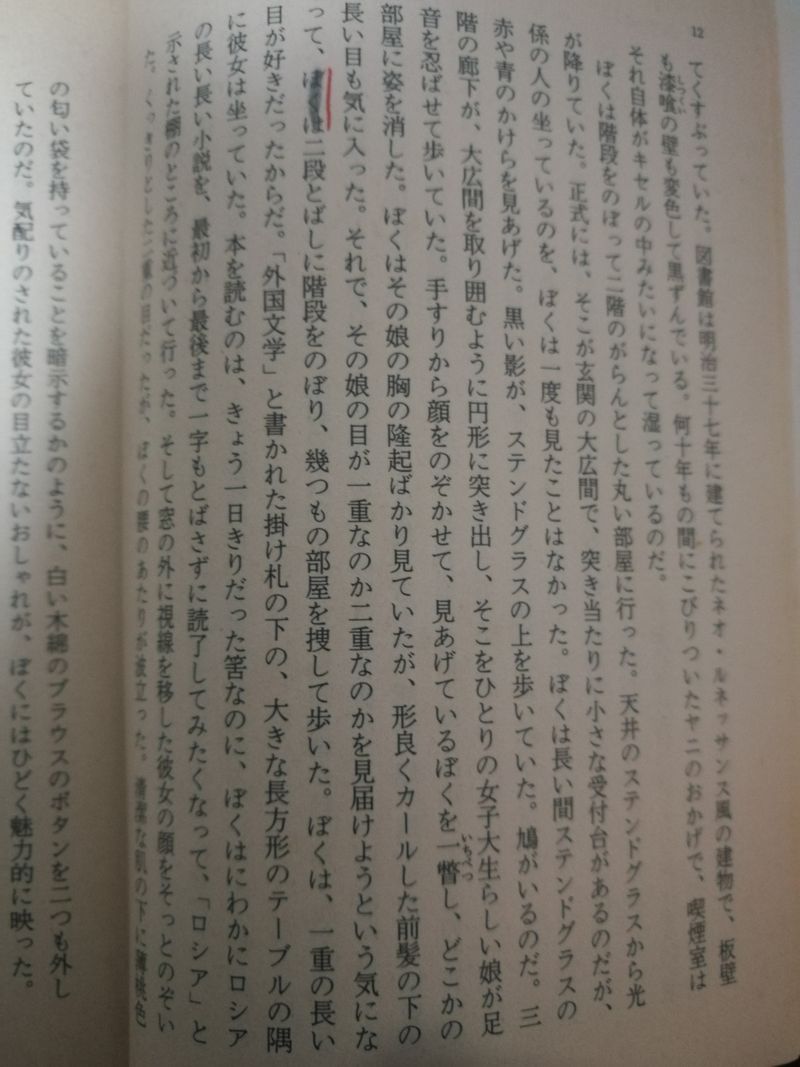 12
てくすぶっていた。図書館は明治三十七年に建てられたネオ・ルネッサンス風の建物で、板壁
も漆喰の壁も変色して黒ずんでいる。何十年もの間にこびりついたヤニのおかげで、喫煙室は
しっくい
それ自体がキセルの中みたいになって湿っているのだ。
ぼくは階段をのぼって二階のがらんとした丸い部屋に行った。天井のステンドグラスから光
が降りていた。正式には、そこが玄関の大広間で、突き当たりに小さな受付台があるのだが、
係の人の坐っているのを、ぼくは一度も見たことはなかった。ぼくは長い間ステンドグラスの
赤や青のかけらを見あげた。黒い影が、ステンドグラスの上を歩いていた。鳩がいるのだ。三
階の廊下が、大広間を取り囲むように円形に突き出し、そこをひとりの女子大生らしい娘が足
音を忍ばせて歩いていた。手すりから顔をのぞかせて、見あげているぼくを一瞥し、どこかの
いちべつ
部屋に姿を消した。ぼくはその娘の胸の隆起ばかり見ていたが、形良くカールした前髪の下の
長い目も気に入った。それで、その娘の目が一重なのか二重なのかを見届けようという気にな
って、は二段とばしに階段をのぼり、幾つもの部屋を捜して歩いた。ぼくは、一重の長い
目が好きだったからだ。「外国文学」と書かれた掛け札の下の、大きな長方形のテーブルの隅
に彼女は坐っていた。本を読むのは、きょう一日きりだった筈なのに、ぼくはにわかにロシア
の長い長い小説を、最初から最後まで一字もとばさずに読了してみたくなって、「ロシア」と
示された棚のところに近づいて行った。そして窓の外に視線を移した彼女の顔をそっとのぞい
た。くっきりとした二重の目だったが、ぼくの腰のあたりが波立った。清潔な肌の下に薄桃色
の匂い袋を持っていることを暗示するかのように、白い木綿のブラウスのボタンを二つも外し
ていたのだ。気配りのされた彼女の目立たないおしゃれが、ぼくにはひどく魅力的に映った。